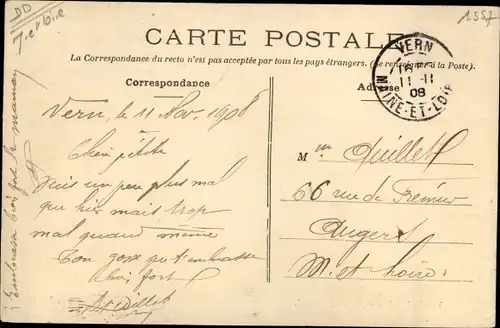 DD
M et Loire
1557
CARTE POSTALE
La Correspondance du recto n'est pas acceptée par tous les pays étrangers. (Se renseigner à la Poste).
Correspondance
Adresse
VERN
11-11
08
MAINE-ET-LOIRE
Vern, le 11 Nov 1908
Chère petite
Suis un peu plus mal
que hier mais trop
mal quand même
Ton gosse qui t'embrasse
bien fort
Quillet
Embrasse bien fort la maman
M
Quillet
66 rue de
Angers
M. et Loire